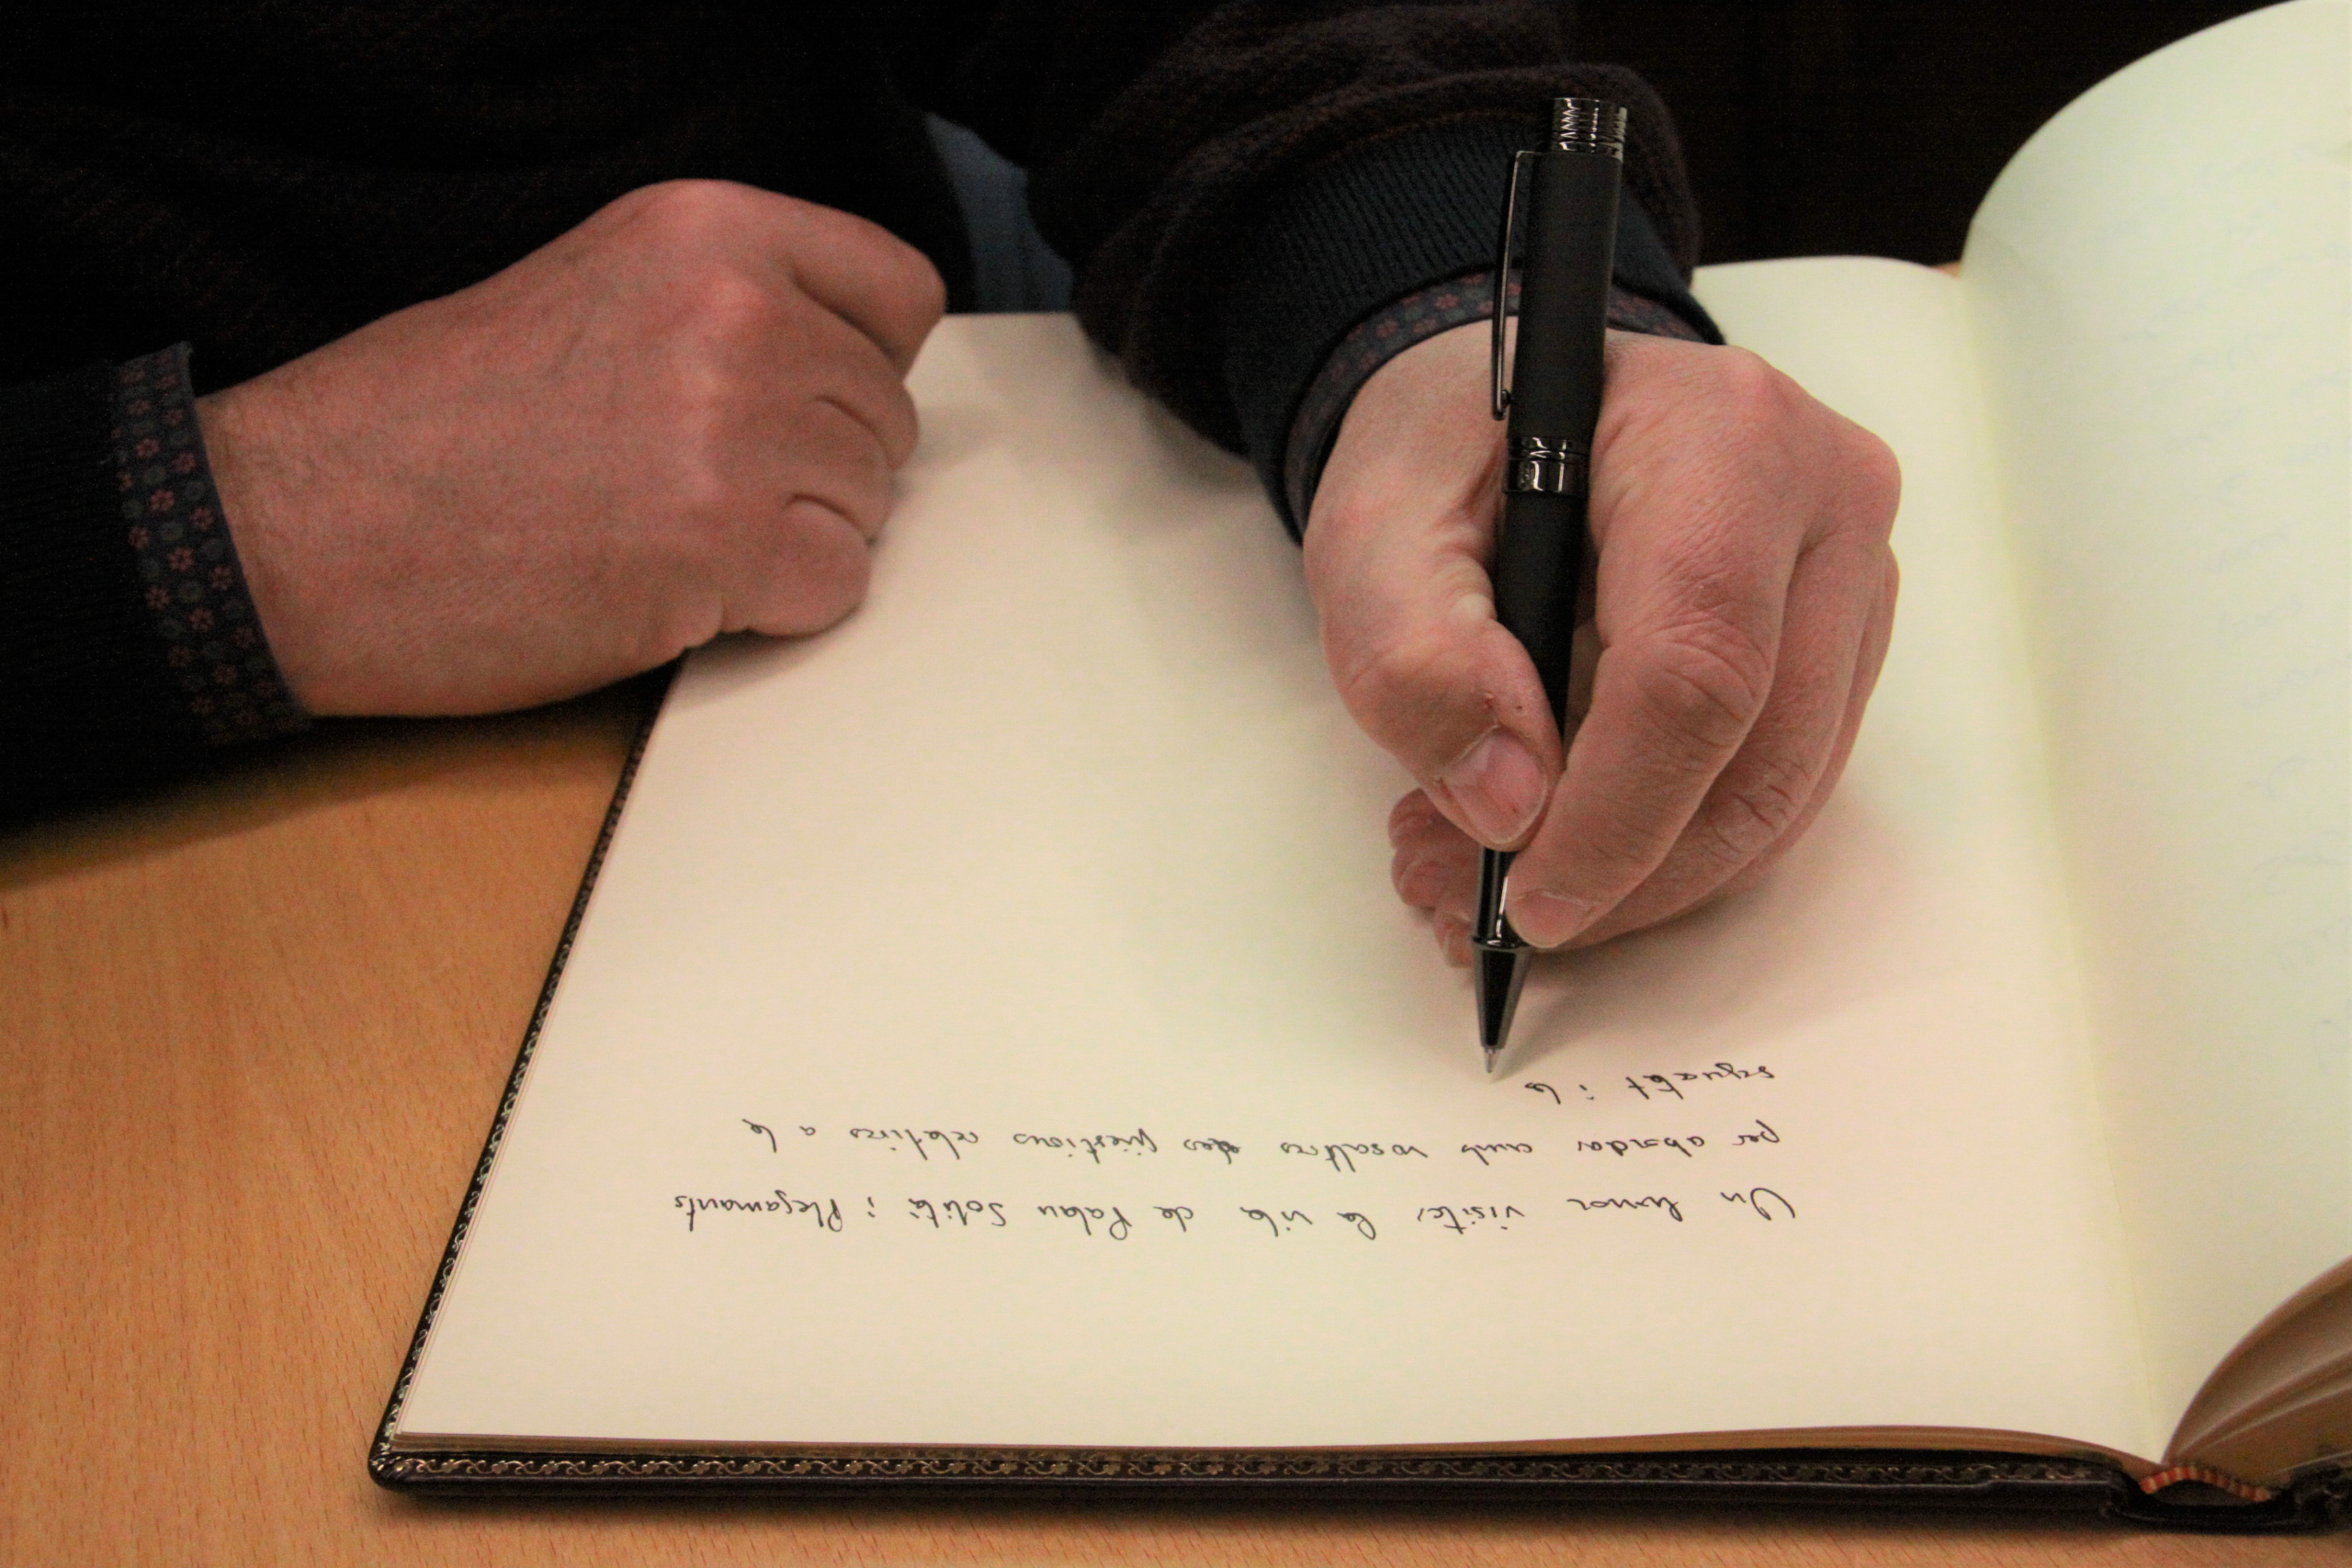 Un honor visitar la vila de Palau Solità i Plegamans
per abordar amb vosaltres des qüestions relatives a la
seguretat i la